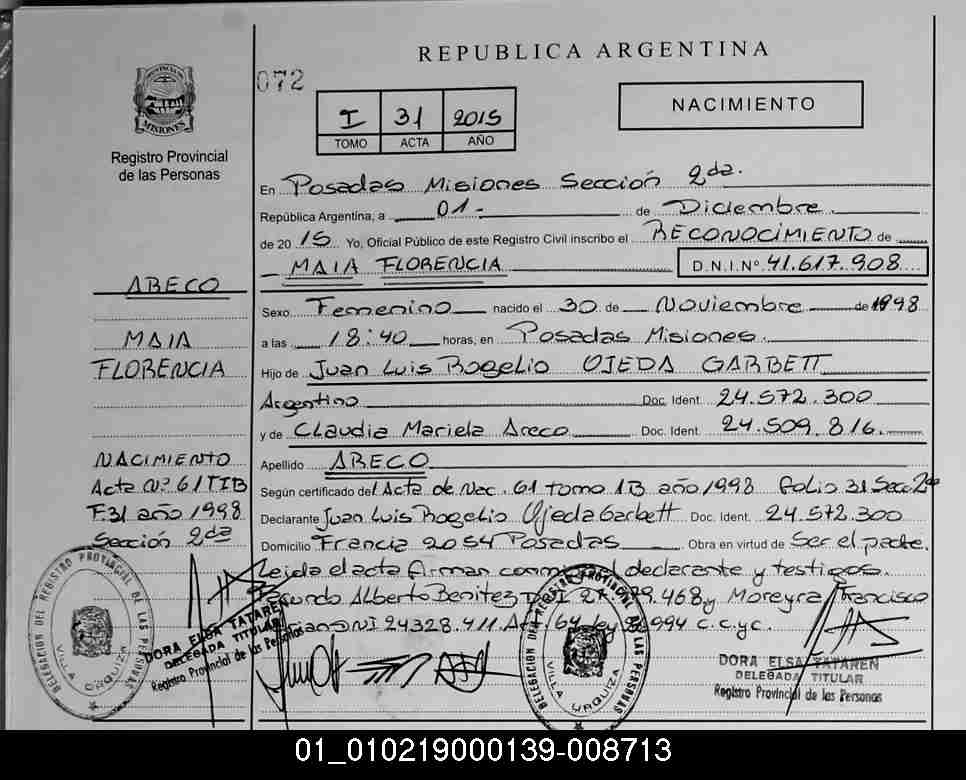 REPUBLICA ARGENTINA
072
NACIMIENTO
I 31 2015
TOMO ACTA AÑO
PROVINCIA DE
MISIONES
Registro Provincial
de las Personas
En Posadas Misiones Sección 2da.
República Argentina, a 01- de Diciembre
de 2015 Yo, Oficial Público de este Registro Civil inscribo el RECONOCIMIENTO de
MAIA FLORENCIA D.N.I.Nº 41.617.908
ARECO
MAIA
FLORENCIA
Sexo Femenino nacido el 30 de Noviembre de 1998
a las 18:40 horas, en Posadas Misiones.
Hijo de Juan Luis Rogelio OJEDA GARBETT
Argentino Doc. Ident. 24.572.300
y de Claudia Mariela Areco Doc. Ident. 24.509.816.
Apellido ARECO
NACIMIENTO
Acta Nº 61 TIB
F.31 año 1998
Sección 2da
Según certificado del Acta de Nac. 61 tomo 1B año 1998 folio 31 Secc 2da
Declarante Juan Luis Rogelio Ojeda Garbett Doc. Ident. 24.572.300
Domicilio Francia 2054 Posadas Obra en virtud de Ser el padre.
Leida el acta firman conmigo el declarante y testigos.
Alberto Benitez 27. .468 y Moreyra Francisco
DNI 24328.411 Art. 64 ley c.c.yc.
DELEGACION DEL REGISTRO PROVINCIAL DE LAS PERSONAS
VILLA URQUIZA
DORA ELSA TATAREN
DELEGADA TITULAR
Registro Provincial de las Personas
DELEGACION DEL REGISTRO PROVINCIAL DE LAS PERSONAS
VILLA URQUIZA
DORA ELSA TATAREN
DELEGADA TITULAR
Registro Provincial de las Personas
01_010219000139-008713